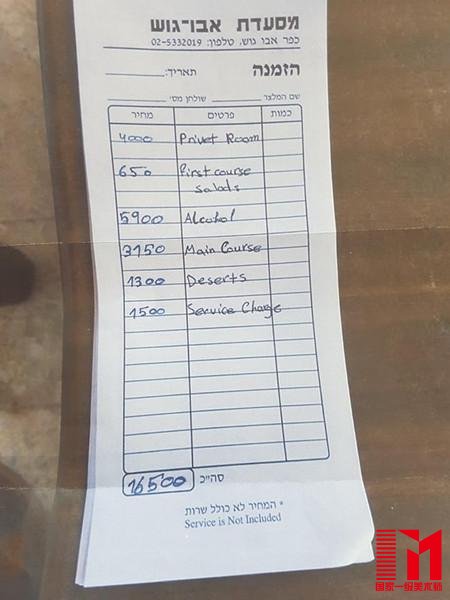 מסעדת אבו-גוש
כפר אבו גוש, טלפון: 02-5332019
הזמנה תאריך:
שם המלצר שולחן מס'
כמות פרטים מחיר
Privet Room 4000
First course 650
salads
Alcohol 5900
Main Course 3150
Deserts 1300
Service Charge 1500
סה"כ 16500
* המחיר לא כולל שרות
Service is Not Included
国家一级美术师